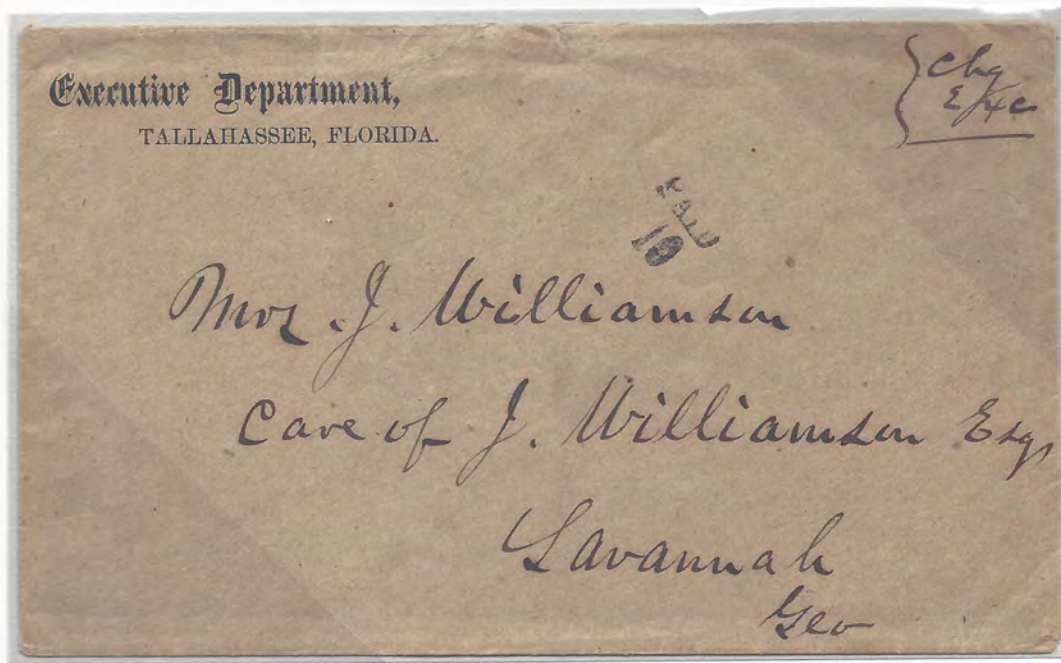 Executive Department,
TALLAHASSEE, FLORIDA.
Chg
PAID
10
Mrs. J. Williamson
Care of J. Williamson Esq,
Savannah
Geo